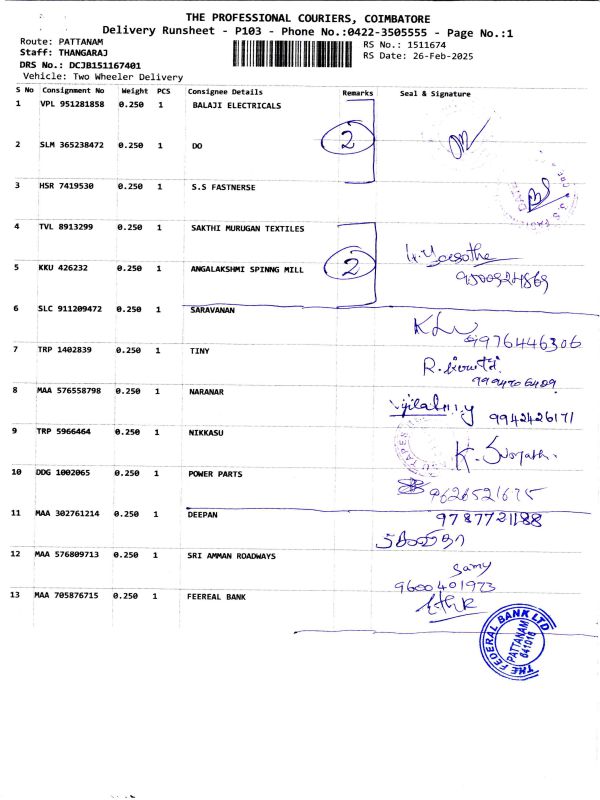 THE PROFESSIONAL COURIERS, COIMBATORE
Delivery Runsheet - P103 - Phone No.:0422-3505555 - Page No.:1
Route: PATTANAM
RS No.: 1511674
Staff: THANGARAJ
RS Date: 26-Feb-2025
DRS No.: DCJB151167401
Vehicle: Two Wheeler Delivery
S No Consignment No Weight PCS Consignee Details Remarks Seal & Signature
1 VPL 951281858 0.250 1 BALAJI ELECTRICALS
2
2 SLM 365238472 0.250 1 DO
3 HSR 7419530 0.250 1 S.S FASTNERSE
4 TVL 8913299 0.250 1 SAKTHI MURUGAN TEXTILES
2
5 KKU 426232 0.250 1 ANGALAKSHMI SPINNG MILL
6 SLC 911209472 0.250 1 SARAVANAN
9976446306
7 TRP 1402839 0.250 1 TINY
8 MAA 576558798 0.250 1 NARANAR
9942426171
9 TRP 5966464 0.250 1 NIKKASU
10 DDG 1002065 0.250 1 POWER PARTS
9626521675
11 MAA 302761214 0.250 1 DEEPAN
9787721188
12 MAA 576809713 0.250 1 SRI AMMAN ROADWAYS
Samy
9600401973
13 MAA 705876715 0.250 1 FEEREAL BANK
THE FEDERAL BANK LTD
PATTANAM
641016